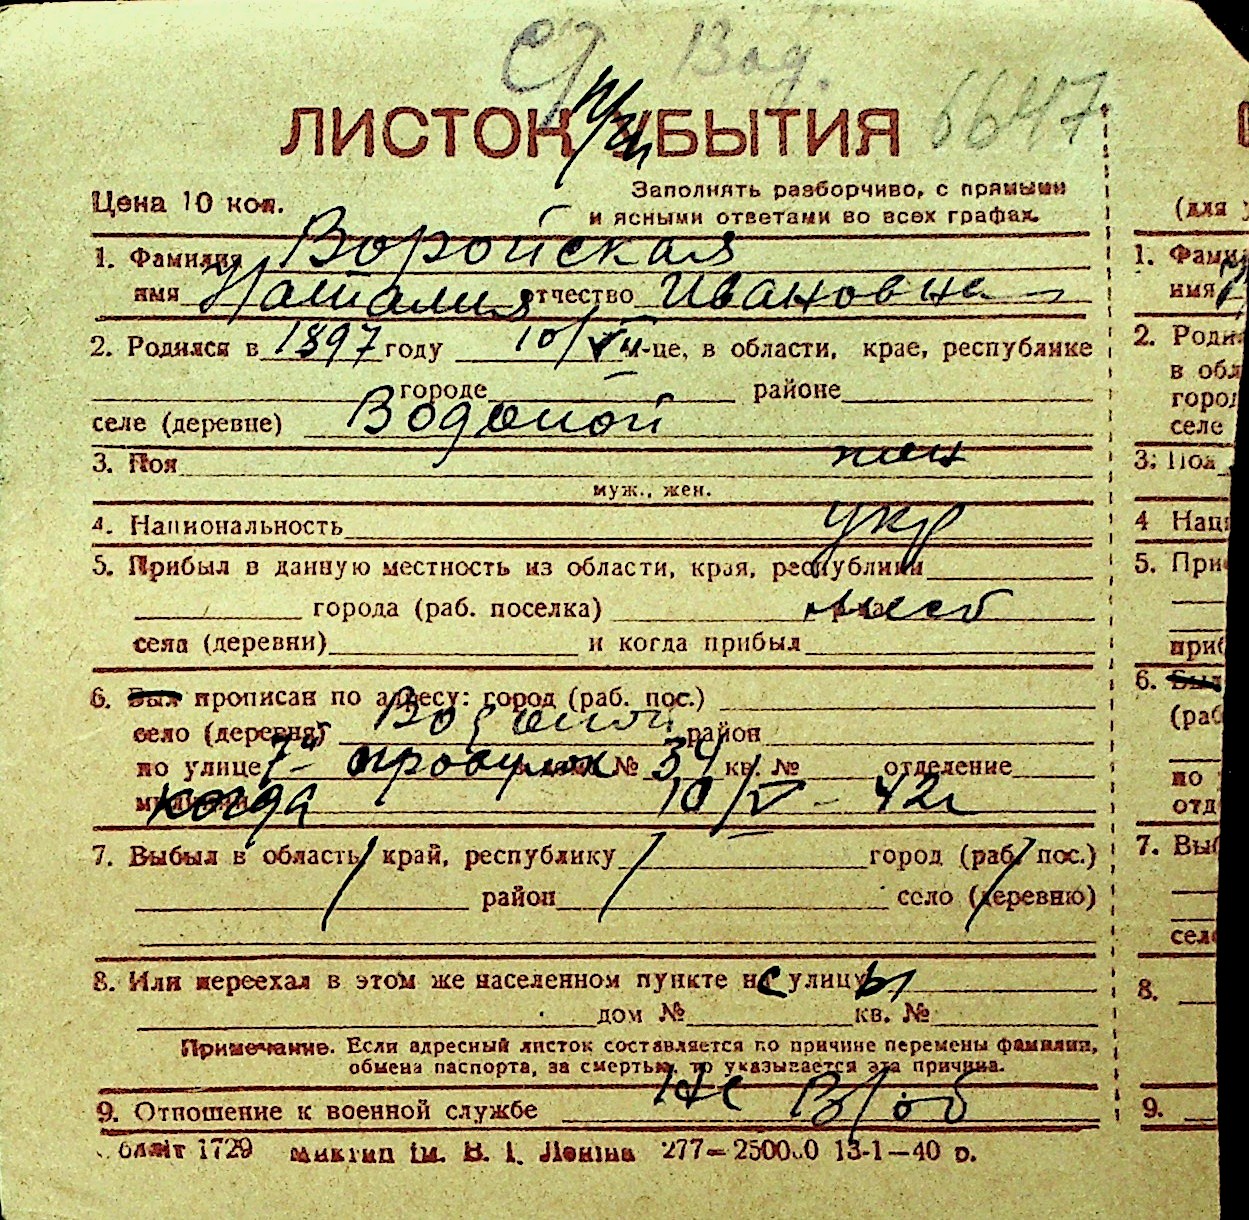 Вод.
ЛИСТОК УБЫТИЯ 6647
Цена 10 коп.
Заполнять разборчиво, с прямыми
и ясными ответами во всех графах.
1. Фамилия Воройская
имя Наталия отчество Ивановна
2. Родился в 1897 году 10/VII м-це, в области, крае, республике
городе районе
селе (деревне) Водопой
3. Пол жен
муж., жен.
4. Национальность укр
5. Прибыл в данную местность из области, края, республики
города (раб. поселка) района
села (деревни) и когда прибыл
6. Был прописан по адресу: город (раб. пос.)
село (деревня) Водопой район
по улице 7й № 34 кв. № отделение
милиции когда 10/V - 42г
7. Выбыл в область, край, республику город (раб. пос.)
район село (деревню)
8. Или переехал в этом же населенном пункте на с улицу ы
дом № кв. №
Примечание. Если адресный листок составляется по причине перемены фамилии,
обмена паспорта, за смертью, то указывается эта причина.
9. Отношение к военной службе не в/об
Облліт 1729 ім. В. І. Леніна 277—250000 13-1—40 р.
(для
1. Фами
имя
2. Роди
в обл
город
селе
3. Пол
4 Наци
5. При
приб
6. Был
(раб
по
отд
7. Выб
село
8.
9.